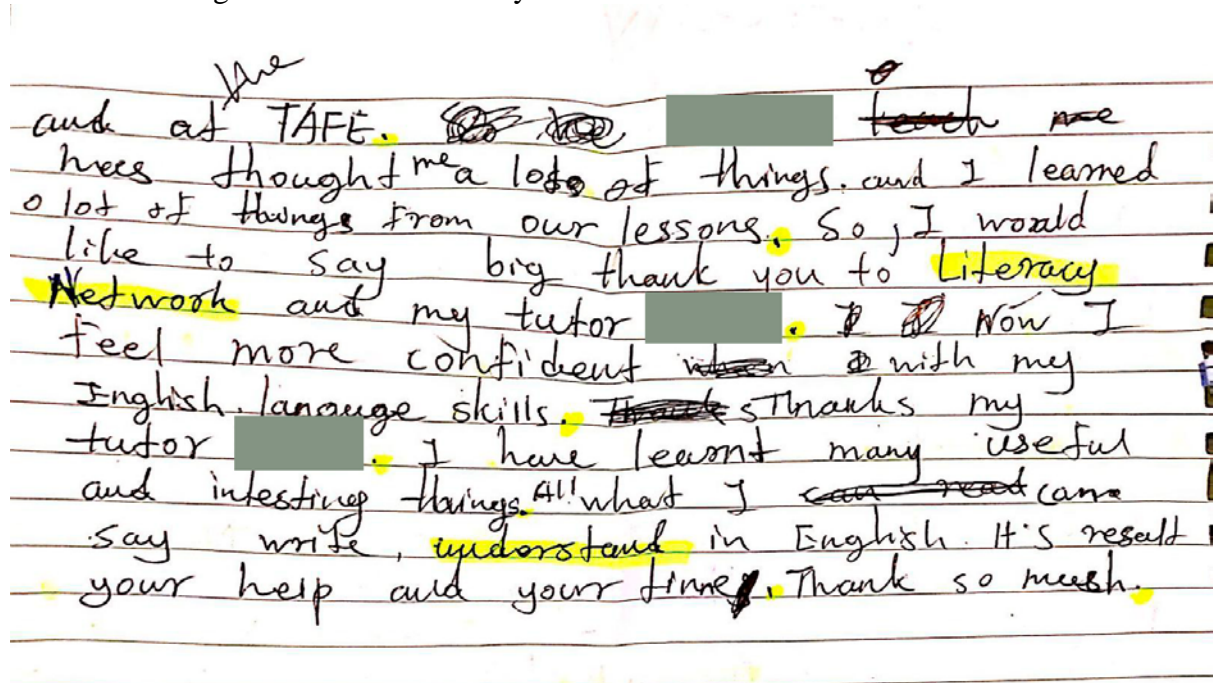 the
and at TAFE. teach me
hees thought me a lots of things. and I learned
a lot of things from our lessons. So, I would
like to say big thank you to Literacy
Network and my tutor . Now I
feel more confident with my
English. lanouge skills. Thanks my
tutor . I have learnt many useful
and intesting things. All what I can read can
say write, understand in English. It's result
your help and your time. Thank so mush.